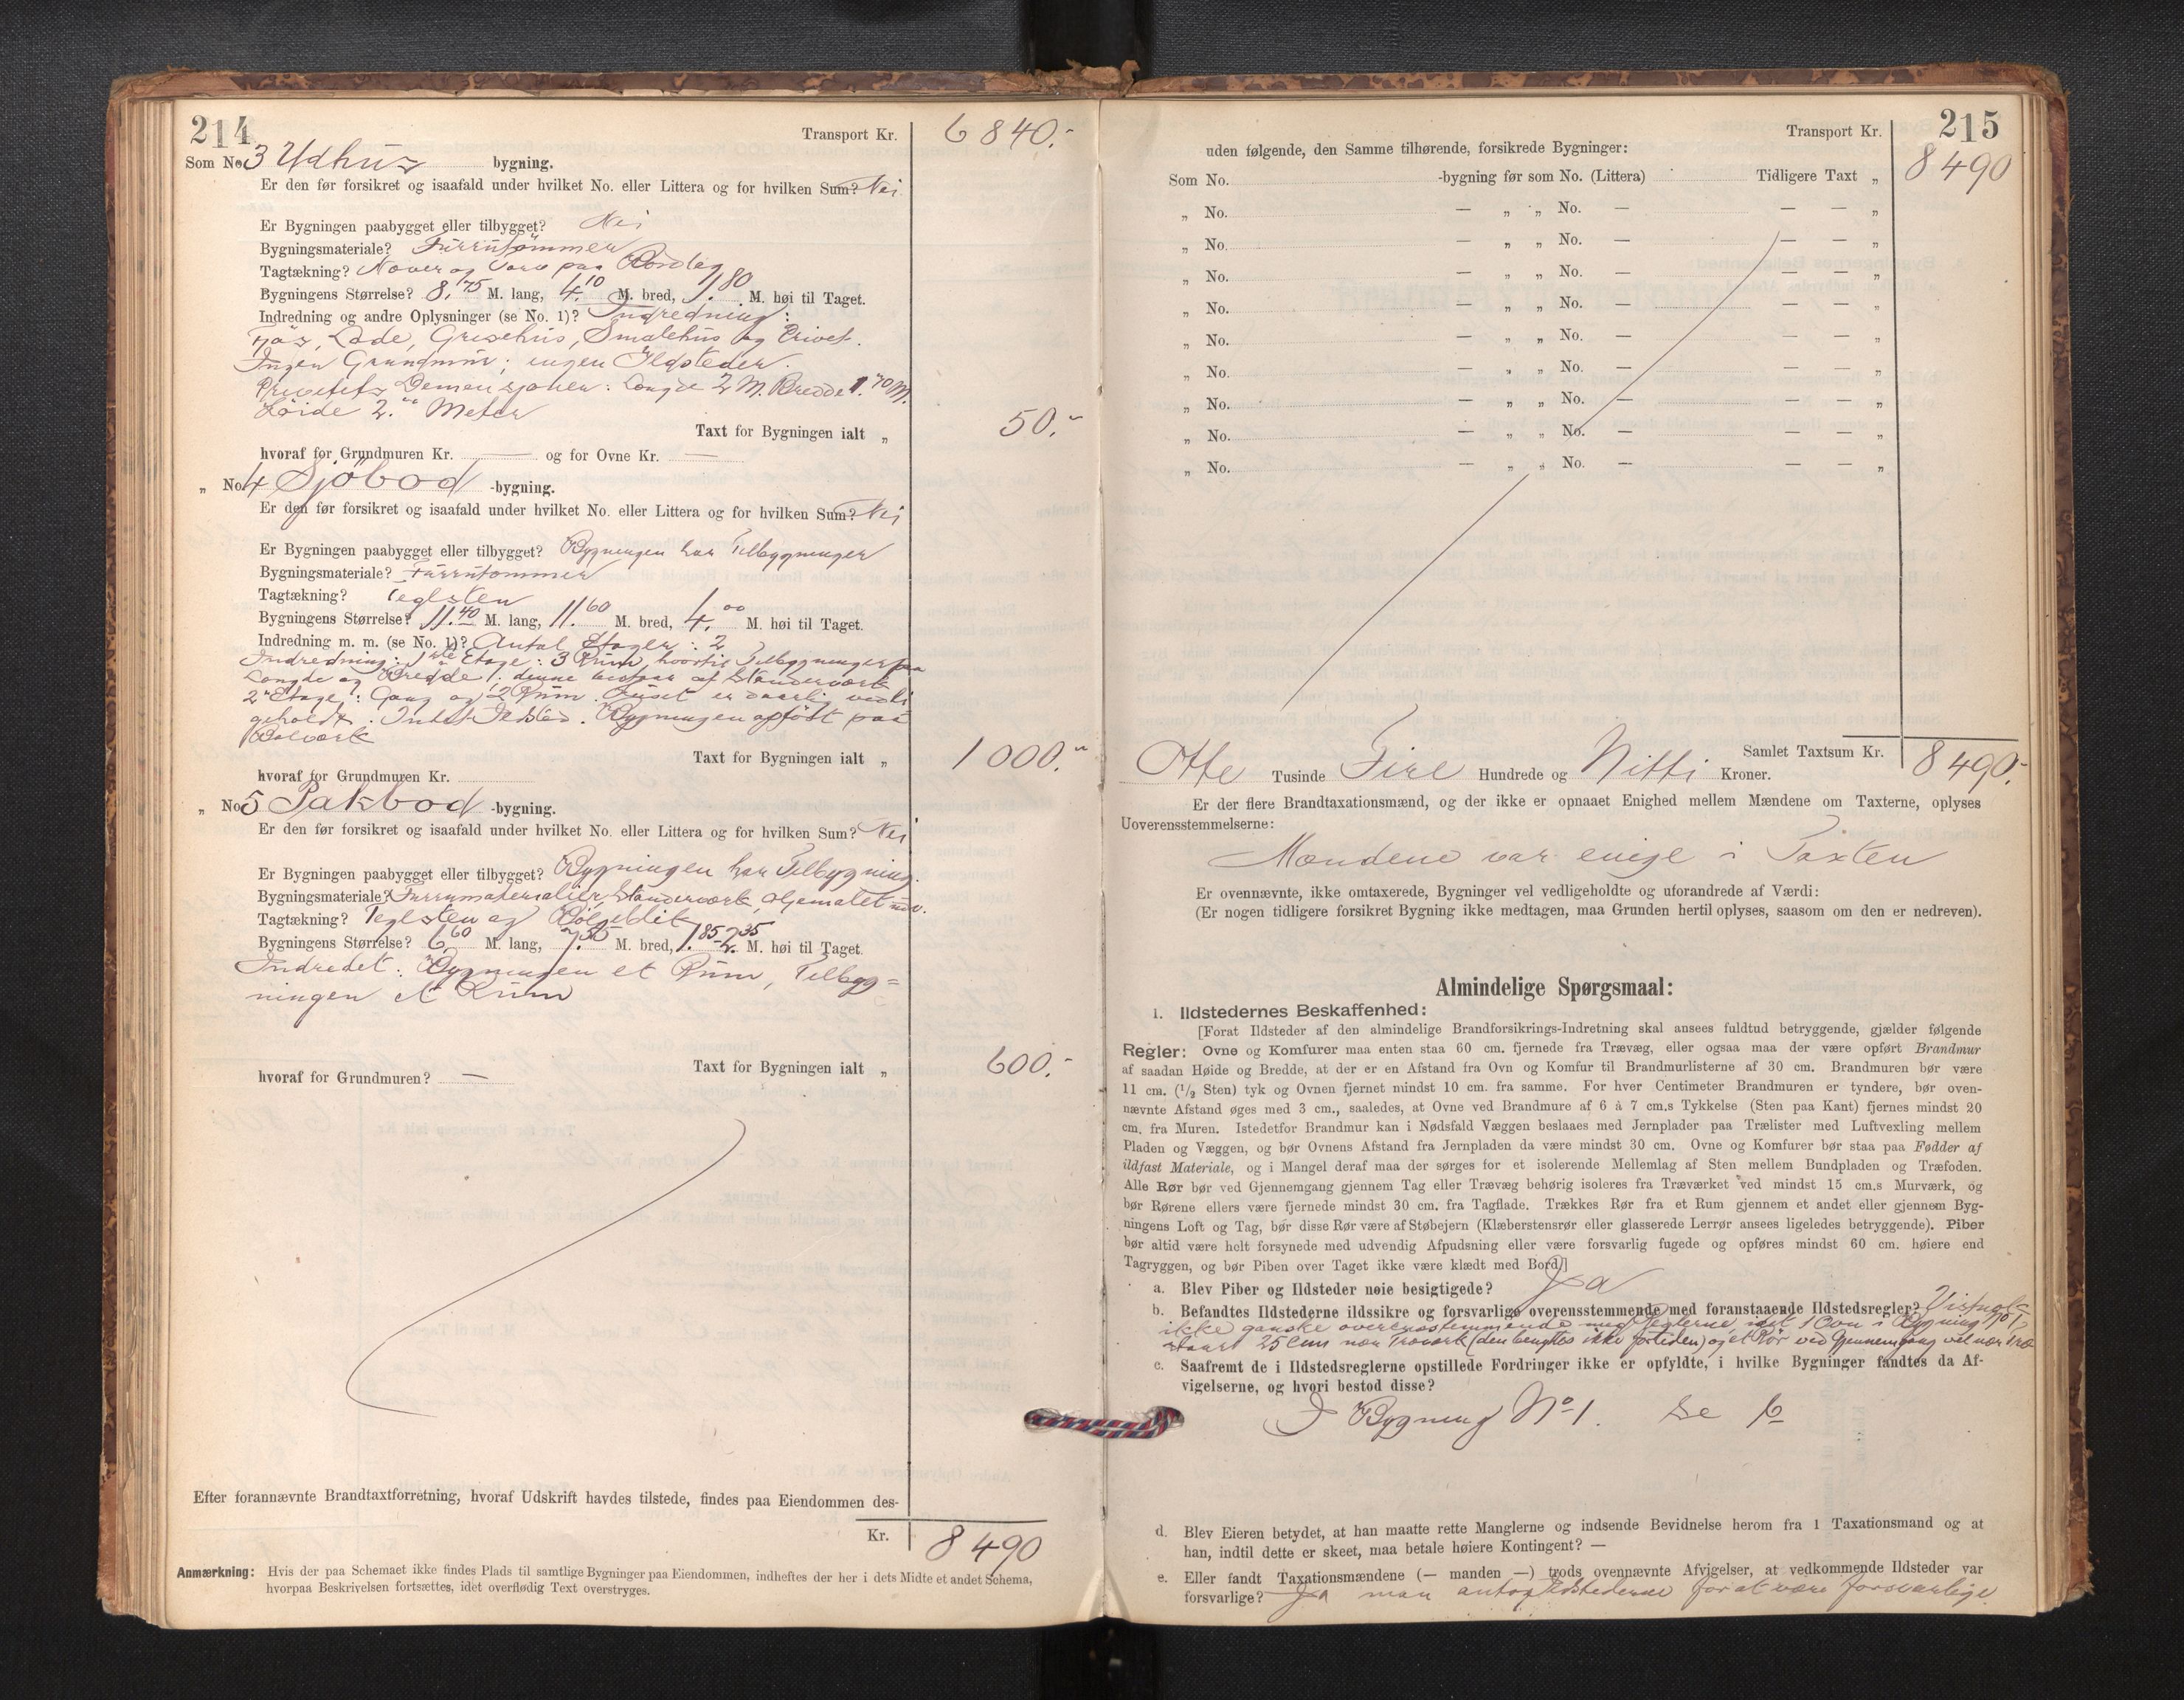 214
Transport Kr. 6 840.-
Som No. 3 Udhus bygning.
Er den før forsikret og isaafald under hvilket No. eller Littera og for hvilken Sum? Nei
Er Bygningen paabygget eller tilbygget? Nei
Bygningsmateriale? Furrutömmer
Tagtækning? Næver og Torv paa Bordlag
Bygningens Størrelse? 8,75 M. lang, 4.10 M. bred, 1.80 M. høi til Taget.
Indredning og andre Oplysninger (se No. 1)? Indredning:
Fjös, Lade, Grisehus, Smalehus og Privet.
Ingen Grundmur; ingen Ildsteder.
Privetets Demensjoner: Længde 2 M. Bredde 1.70 M.
Höide 2. Meter
Taxt for Bygningen ialt „ 50.-
hvoraf for Grundmuren Kr. — og for Ovne Kr. —
„ No. 4 Sjöbod -bygning.
Er den før forsikret og isaafald under hvilket No. eller Littera og for hvilken Sum? Nei
Er Bygningen paabygget eller tilbygget? Bygningen har Tilbygninger
Bygningsmateriale? Furrutömmer
Tagtækning? Teglsten
Bygningens Størrelse? 11.40 M. lang, 11.60 M. bred, 4.00 M. høi til Taget.
Indredning m. m. (se No. 1)? Antal Etager: 2
Indredning: 1ste Etage: 3 Rum, hvortil Tilbygninger paa
Længde og Bredde; denne bestaar af Standerværk
2 Etage: Gang og 2 Rum. Huset er daarlig vedli
geholdt. Intet Ildsted. Bygningen opfört paa
Bolværk
Taxt for Bygningen ialt „ 1 000.-
hvoraf for Grundmuren Kr.
„ No. 5 Pakbod -bygning.
Er den før forsikret og isaafald under hvilket No. eller Littera og for hvilken Sum? Nei
Er Bygningen paabygget eller tilbygget? Bygningen har Tilbygning.
Bygningsmateriale? Furrumaterialier, Standerværk,
Tagtækning? Teglsten og Bölgeblik
Bygningens Størrelse? 6.60 M. lang, 7.55 M. bred, 1.85-2.35 M. høi til Taget.
Indredet: Bygningen et Rum, Tilbyg=
ningen et Rum
Taxt for Bygningen ialt „ 600.-
hvoraf for Grundmuren? —
Efter forannævnte Brandtaxtforretning, hvoraf Udskrift havdes tilstede, findes paa Eiendommen des-
Kr. 8 490
Anmærkning: Hvis der paa Schemaet ikke findes Plads til samtlige Bygninger paa Eiendommen, indheftes der her i dets Midte et andet Schema,
hvorpaa Beskrivelsen fortsættes, idet overflødig Text overstryges.
215
Transport Kr. 8 490
uden følgende, den Samme tilhørende, forsikrede Bygninger:
Som No. -bygning før som No. (Littera) Tidligere Taxt „
„ No. — „ „ No. — — — „
„ No. — „ „ No. — — — „
„ No. — „ „ No. — — — „
„ No. — „ „ No. — — — „
„ No. — „ „ No. — — — „
„ No. — „ „ No. — — — „
„ No. — „ „ No. — — — „
„ No. — „ „ No. — — — „
„ No. — „ „ No. — — — „
Samlet Taxtsum Kr. 8 490.-
Otte Tusinde Fire Hundrede og Nitti Kroner.
Er der flere Brandtaxationsmænd, og der ikke er opnaaet Enighed mellem Mændene om Taxterne, oplyses
Uoverensstemmelserne:
Mændene var enige i Taxten
Er ovennævnte, ikke omtaxerede, Bygninger vel vedligeholdte og uforandrede af Værdi:
(Er nogen tidligere forsikret Bygning ikke medtagen, maa Grunden hertil oplyses, saasom om den er nedreven).
Almindelige Spørgsmaal:
1. Ildstedernes Beskaffenhed:
[Forat Ildsteder af den almindelige Brandforsikrings-Indretning skal ansees fuldtud betryggende, gjælder følgende
Regler: Ovne og Komfurer maa enten staa 60 cm. fjernede fra Trævæg, eller ogsaa maa der være opført Brandmur
af saadan Høide og Bredde, at der er en Afstand fra Ovn og Komfur til Brandmurlisterne af 30 cm. Brandmuren bør være
11 cm. (1/2 Sten) tyk og Ovnen fjernet mindst 10 cm. fra samme. For hver Centimeter Brandmuren er tyndere, bør oven-
nævnte Afstand øges med 3 cm., saaledes, at Ovne ved Brandmure af 6 à 7 cm.s Tykkelse (Sten paa Kant) fjernes mindst 20
cm. fra Muren. Istedetfor Brandmur kan i Nødsfald Væggen beslaaes med Jernplader paa Trælister med Luftvexling mellem
Pladen og Væggen, og bør Ovnens Afstand fra Jernpladen da være mindst 30 cm. Ovne og Komfurer bør staa paa Fødder af
ildfast Materiale, og i Mangel deraf maa der sørges for et isolerende Mellemlag af Sten mellem Bundpladen og Træfoden.
Alle Rør bør ved Gjennemgang gjennem Tag eller Trævæg behørig isoleres fra Træværket ved mindst 15 cm.s Murværk, og
bør Rørene ellers være fjernede mindst 30 cm. fra Tagflade. Trækkes Rør fra et Rum gjennem et andet eller gjennem Byg-
ningens Loft og Tag, bør disse Rør være af Støbejern (Klæberstensrør eller glasserede Lerrør ansees ligeledes betryggende). Piber
bør altid være helt forsynede med udvendig Afpudsning eller være forsvarlig fugede og opføres mindst 60 cm. høiere end
Tagryggen, og bør Piben over Taget ikke være klædt med Bord.]
a. Blev Piber og Ildsteder nøie besigtigede? Ja
b. Befandtes Ildstederne ildssikre og forsvarlige overensstemmende med foranstaaende Ildstedsregler?
ikke ganske overensstemmende med Reglerne idet 1 Ovn i Bygning No 1
staar 25 Ctm nær Træværk (den benyttes ikke fortiden) og et Rör ved Gjennemgang vel nær Træ
c. Saafremt de i Ildstedsreglerne opstillede Fordringer ikke er opfyldte, i hvilke Bygninger fandtes da Af-
vigelserne, og hvori bestod disse?
I Bygning No 1. Se b
d. Blev Eieren betydet, at han maatte rette Manglerne og indsende Bevidnelse herom fra 1 Taxationsmand og at
han, indtil dette er skeet, maa betale høiere Kontingent? —
e. Eller fandt Taxationsmændene (— manden —) trods ovennævnte Afvigelser, at vedkommende Ildsteder var
forsvarlige? Ja man antog Ildstederne for at være forsvarlige